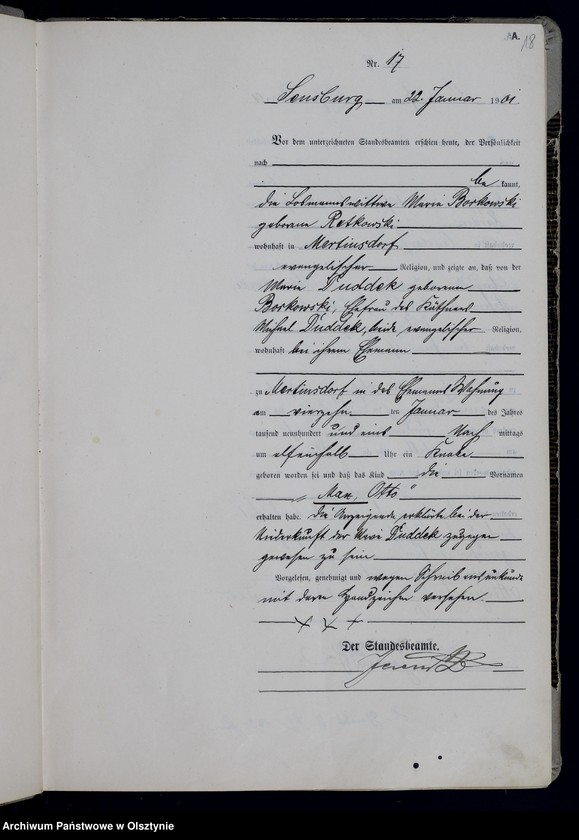 A.
18
Nr. 17
Sensburg am 22. Januar 1901.
Vor dem unterzeichneten Standesbeamten erschien heute, der Persönlichkeit
nach
be kannt,
die Losmannswittwe Maria Borkowski
geborene Retkowski
wohnhaft in Mertinsdorf
evangelischer Religion, und zeigte an, daß von der
Maria Duddek geborene
Borkowski, Ehefrau des Käthners
Michael Duddek, beide evangelischer Religion,
wohnhaft bei ihrem Ehemann
zu Mertinsdorf in des Ehemanns Wohnung
am vierzehn ten Januar des Jahres
tausend neunhundert und eins Nach mittags
um elfeinhalb Uhr ein Knabe
geboren worden sei und daß das Kind die Vornamen
„Max, Otto"
erhalten habe. Die Anzeigende erklärte bei der
Niederkunft der Duddek zugegen
gewesen zu sein
Vorgelesen, genehmigt und wegen Schreibensunkunde
mit deren Handzeichen versehen.
+ + +
Der Standesbeamte.
Archiwum Państwowe w Olsztynie